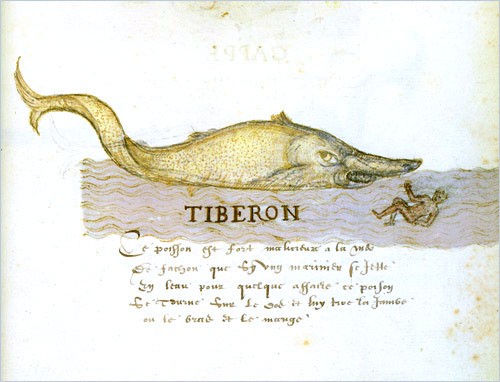 TIBERON
Ce poisson est fort malicieux a la mer
De fachon que sy ung marinier se Jette
En leau pour quelque affaire ce poison
Se Tourne sur le dos et luy tire la Jambe
ou le bras et le mange